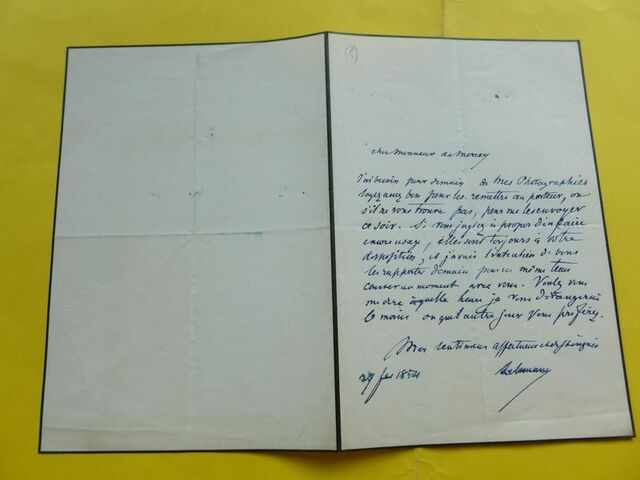 5
cher Monsieur de Mercey
J'ai besoin pour demain de mes Photographies
soyez assez bon pour les remettre au porteur, ou
s'il ne vous trouve pas, pour me les envoyer
ce soir. Si vous jugiez à propos d'en faire
encore usage, elles sont toujours à votre
disposition, et j'avais l'intention de vous
les rapporter demain pour en même temps
causer un moment avec vous. Voulez vous
me dire à quelle heure je vous dérangerais
le moins ou quel autre jour vous préférez.
Mes sentiments affectueux et distingués
29 1854